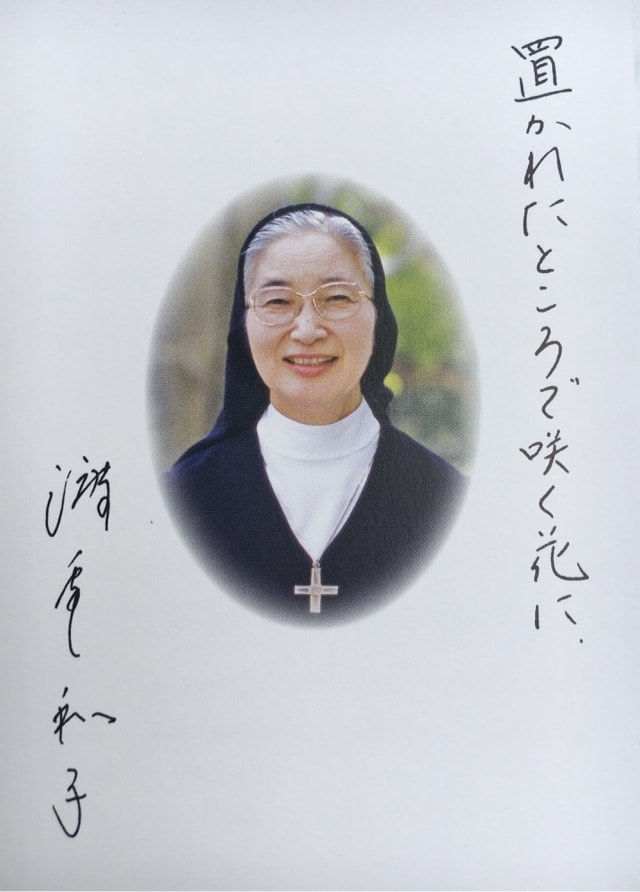 置かれたところで咲く花に.
渡辺和子